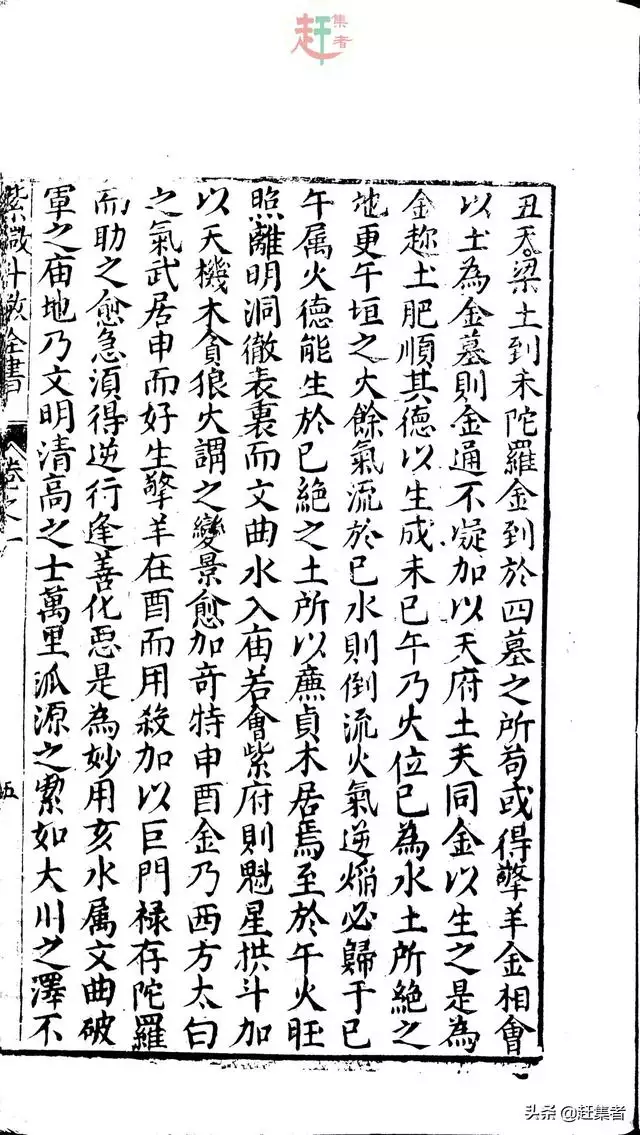 赶集者
丑天梁土到未陀羅金到於四墓之所苟或得擎羊金相會
以土為金墓則金通不凝加以天府土天同金以生之是為
金趂土肥順其德以生成未巳午乃火位巳為水土所絶之
地更午垣之火餘氣流於巳水則倒流火氣逆焰必歸于巳
午属火德能生於巳絶之土所以廉貞木居焉至於午火旺
照離明洞徹表裏而文曲水入庙若會紫府則魁星拱斗加
以天機木貪狼火謂之變景愈加奇特申酉金乃西方太白
之氣武居申而好生擎羊在酉而用殺加以巨門禄存陀羅
而助之愈急須得逆行逢善化惡是為妙用亥水属文曲破
軍之庙地乃文明清高之士萬里派源之潔如大川之澤不
紫微斗数全書 卷之一 五
头条 @赶集者